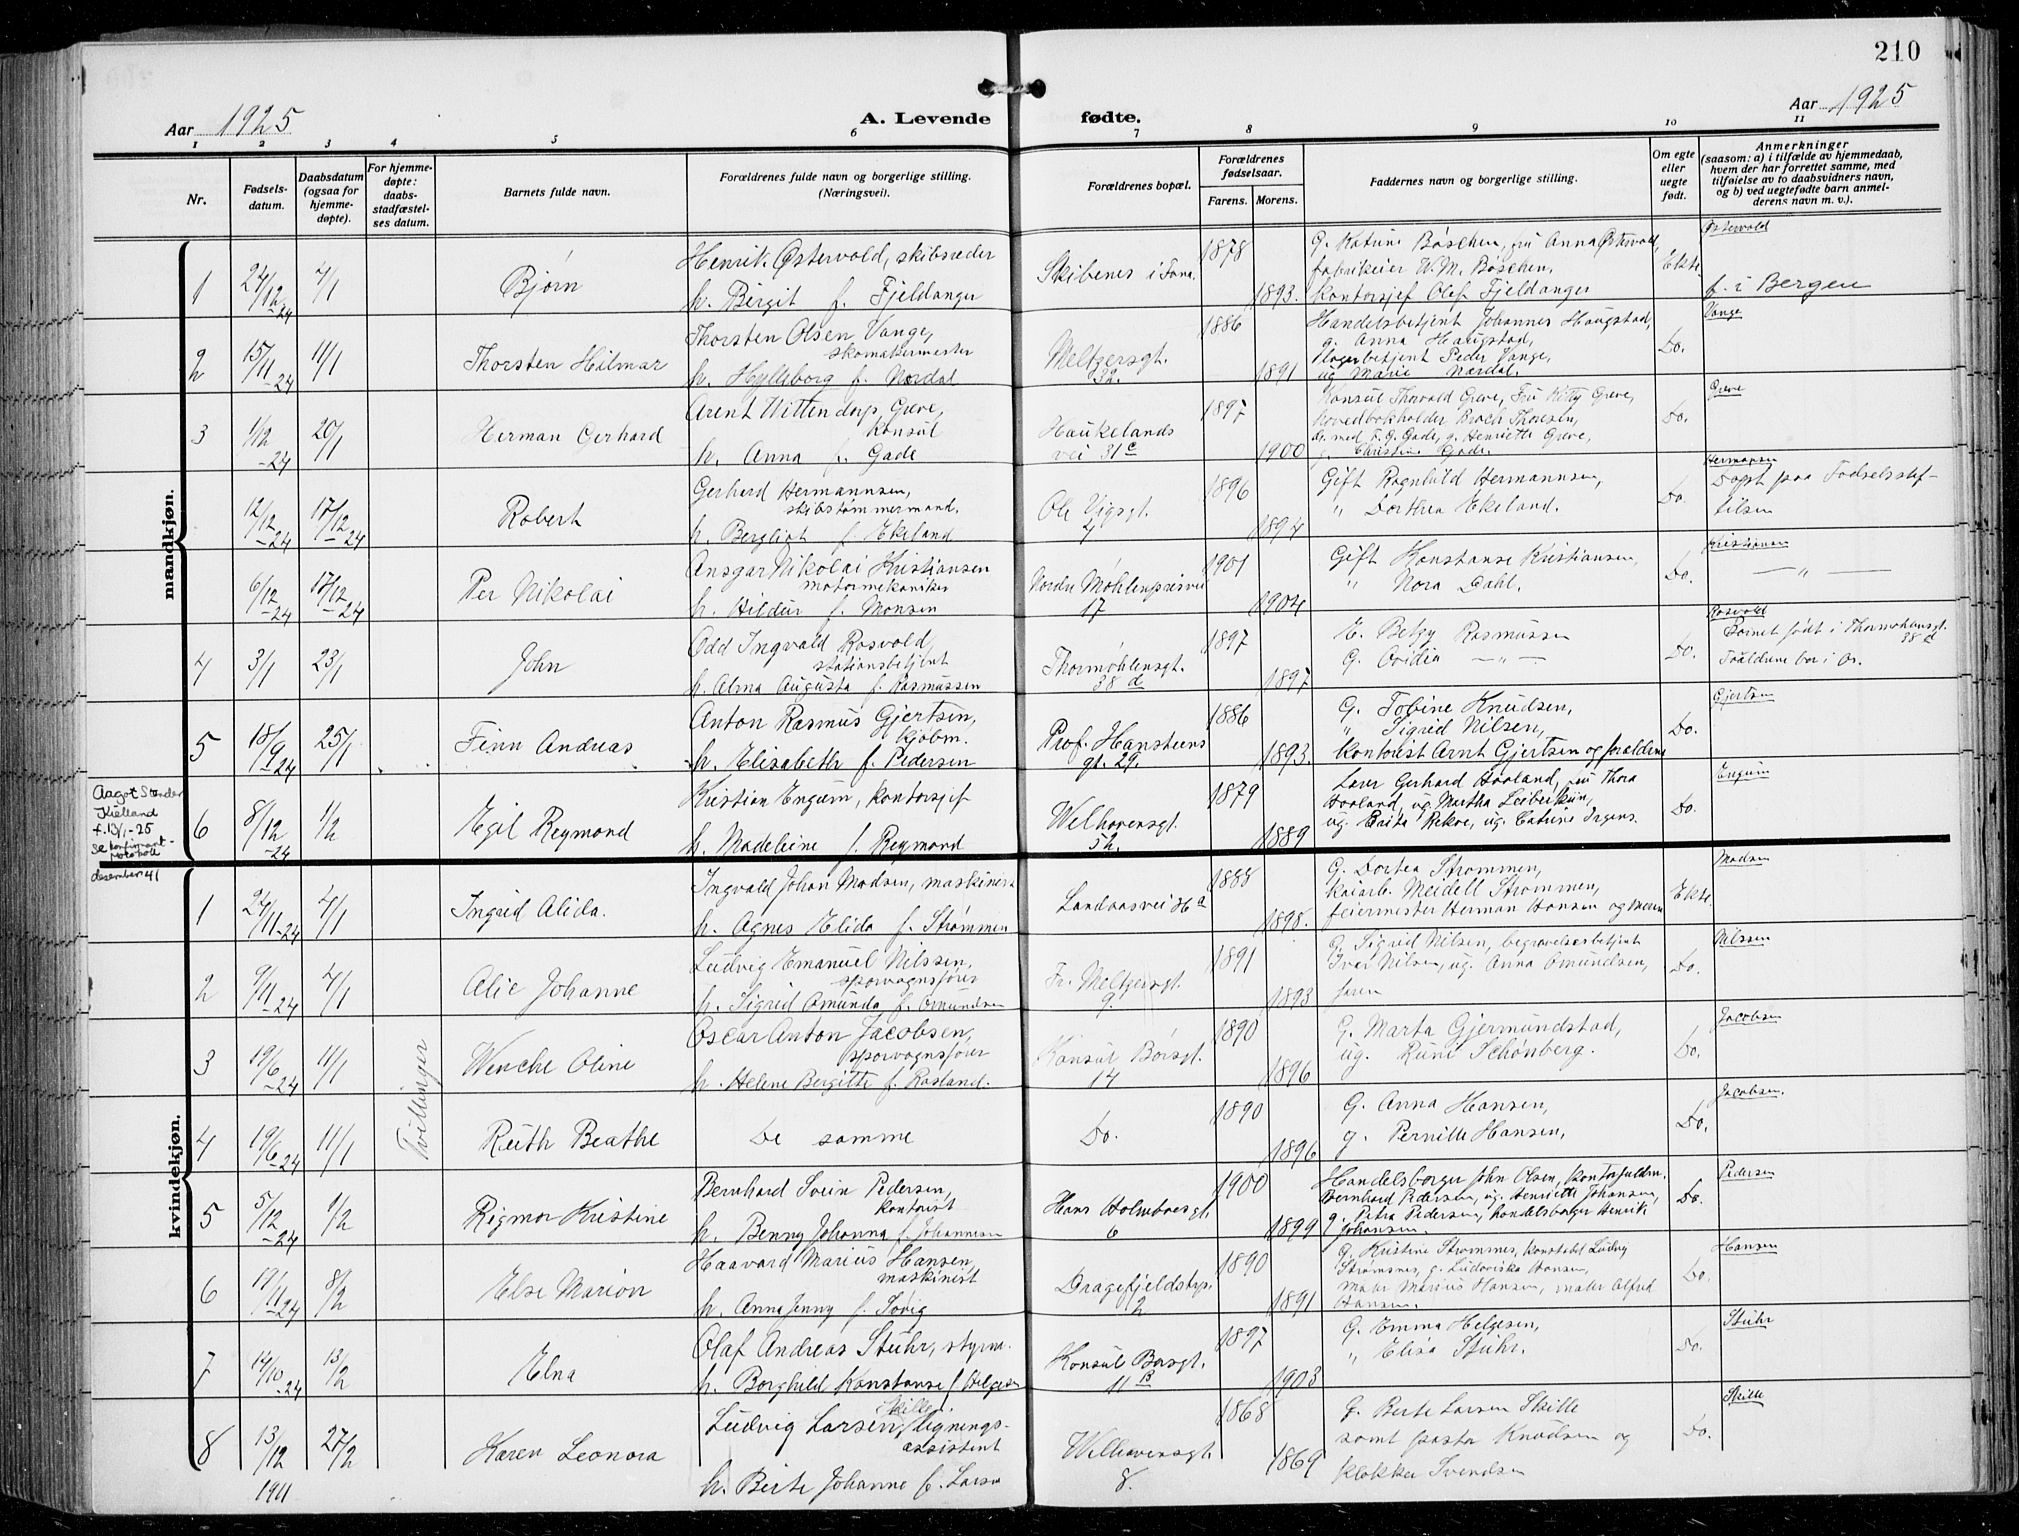 210
Aar 1925
A. Levende fødte.
Aar 1925
1 2 3 4 5 6 7 8 9 10 11
Nr.
Fødsels-
datum.
Daabsdatum
(ogsaa for
hjemme-
døpte).
For hjemme-
døpte:
daabs-
stadfæstel-
ses datum.
Barnets fulde navn.
Forældrenes fulde navn og borgerlige stilling.
(Næringsvei).
Forældrenes bopæl.
Forældrenes
fødselsaar.
Farens. Morens.
Faddernes navn og borgerlige stilling.
Om egte
eller
uegte
født.
Anmerkninger
(saasom: a) i tilfælde av hjemmedaab,
hvem der har forrettet samme, med
tilføielse av to daabsvidners navn,
og b) ved uegtefødte barn anmel-
derens navn m. v.).
mandkjøn.
1 24/12-24 4/1 Bjørn
Henrik Østervold, skibsreder
h. Birgit f. Fjeldanger
Skibenes i Fana.
1878 1893.
G. Katrine Böschen, fru Anna Østervold,
fabrikeier W. M. Böschen,
kontorsjef Olef Fjeldanger
Ekte
Østervold
f. i Bergen
2 15/11-24 11/1 Thorsten Hilmar
Thorsten Olsen Vange,
skomakermester
h. Hylleborg f. Nordal
Meltzersgt.
32.
1886 1891
Handelsbetjent Johannes Haugstad,
g. Anna Haugstad,
lagerbetjent Peder Vange,
ug Marie Nordal.
Do.
Vange
3 1/12-24 20/1 Herman Gerhard
Arent Wittendorp Greve,
Konsul
h. Anna f. Gade
Haukelands
vei 31c
1897 1900
Konsul Thorvald Greve, Fru Kitty Greve,
hovedbokholder Broch Thoresen,
dr. med F. G. Gade, g. Henriette Greve,
g. Christine Gade.
Do.
Greve
12/12-24 17/12-24 Robert
Gerhard Hermannsen,
skibstømmermand.
h. Bergliot f. Ekeland
Ole Vigsgt.
4
1896 1894
Gift Ragnhild Hermannsen,
" Dorthea Ekeland.
Do
Hermansen
Døpt paa Fødselsstif-
telsen
6/12-24 17/12-24 Per Nikolai
Ansgar Nikolai Kristiansen
motormekaniker
h. Hildur f. Monsen
Nordre Möhlenprisvei
17
1901 1904
Gift Konstanse Kristiansen,
" Nora Dahl.
Do.
Kristiansen
— " —
4 3/1 23/1 John
Odd Ingvald Rosvold,
stationsbetjent
h. Alma Augusta f. Rasmussen
Thormøhlensgt.
38 d
1897 1897
E. Betzy Rasmussen
G. Ovidia — " —
Do.
Rosvold
Barnet født i Thormøhlensgt.
38 d
Foreldrene bor i Os.
5 18/9-24 25/1 Finn Andreas
Anton Rasmus Gjertsen,
kjøbm.
h. Elisabeth f. Pedersen
Prof. Hansteens
gt. 29.
1886 1893.
G. Tobine Knudsen,
" Sigrid Nilsen,
kontorist Arnt Gjertsen og foreldrene
Do.
Gjertsen
Aagot Stender
Kielland
f. 13/1-25
se konfirmant-
protokoll
desember 41
6 8/12-24 1/2 Egil Reymond
Kristian Engum, kontorsjef
h. Madeleine f. Reymond
Welhavensgt.
52.
1879 1889
Lærer Gerhard Haaland, fru Thora
Haaland, ug. Martha
ug. Erita Rekve, ug. Catrine Irgens.
Do.
Engum
kvindekjøn.
1 24/11-24 4/1 Ingrid Alida.
Ingvald Johan Madsen, maskinist
h. Agnes Elida f. Strømmen
Landaasvei
1888 1898.
G. Dortea Strømmen,
kaiarb. Meidell Strømmen,
feiermester Herman Hansen og moren
Ekte.
Madsen
2 9/11-24 4/1 Alie Johanne
Ludvig Emanuel Nilssen,
sporvognsfører
h. Sigrid Amunda f. Amundsen
Fr. Meltzersgt.
9.
1891 1893
G. Sigrid Nilsen, begravelsesbetjent
Iver Nilsen, ug. Anna Amundsen,
faren
Do.
Nilssen
Tvillinger
3 19/6-24 11/1 Wenche Oline
Oscar Anton Jacobsen,
sporvognsfører
h. Helene Bergitte f. Rasland.
Konsul Børsgt.
14
1890 1896
G. Marta Gjermundstad,
ug. Runi Schönberg.
Do.
Jacobsen
4 19/6-24 11/1 Ruth Beathe
De samme
Do.
1890 1896
G. Anna Hansen,
g. Pernille Hansen,
Do.
Jacobsen.
5 5/12-24 1/2 Rigmor Kristine
Bernhard Svein Pedersen,
kontorist
h. Benny Johanna f. Johannesen
Hans Holmboesgt.
6
1900 1899
Handelsborger John Olsen, kontorfuldm.
Bernhard Pedersen, ug. Henriette Johansen,
g. Petra Pedersen, handelsborger Henrik
Johansen.
Do.
Pedersen
6 19/11-24 8/2 Else Marion
Haavard Marius Hansen,
maskinist
h. Anna Jenny f. Søvig
Dragefjeldstrp.
2
1890 1891
G. Kristine Strømsnes, konstabel Ludvig
Strømsnes, g. Ludovika Hansen,
maler Marius Hansen, maler Alfred
Hansen.
Do.
Hansen
7 14/10-24 13/2 Elna
Olaf Andreas Stuhr, styrm.
h. Borghild Konstanse f. Helgesen
Konsul Børsgt.
11 B
1897 1903
G. Emma Helgesen,
" Elisa Stuhr.
Do.
Stuhr
8 13/12 1911 27/2 Karen Leonora
Skille,
Ludvig Larsen, lignings-
assistent
h. Berte Johanne f. Larsen
Welhavensgt.
8.
1868 1869
G. Berte Larsen Skille
samt pastor Knudsen og
klokker Svendsen
Do.
Skille